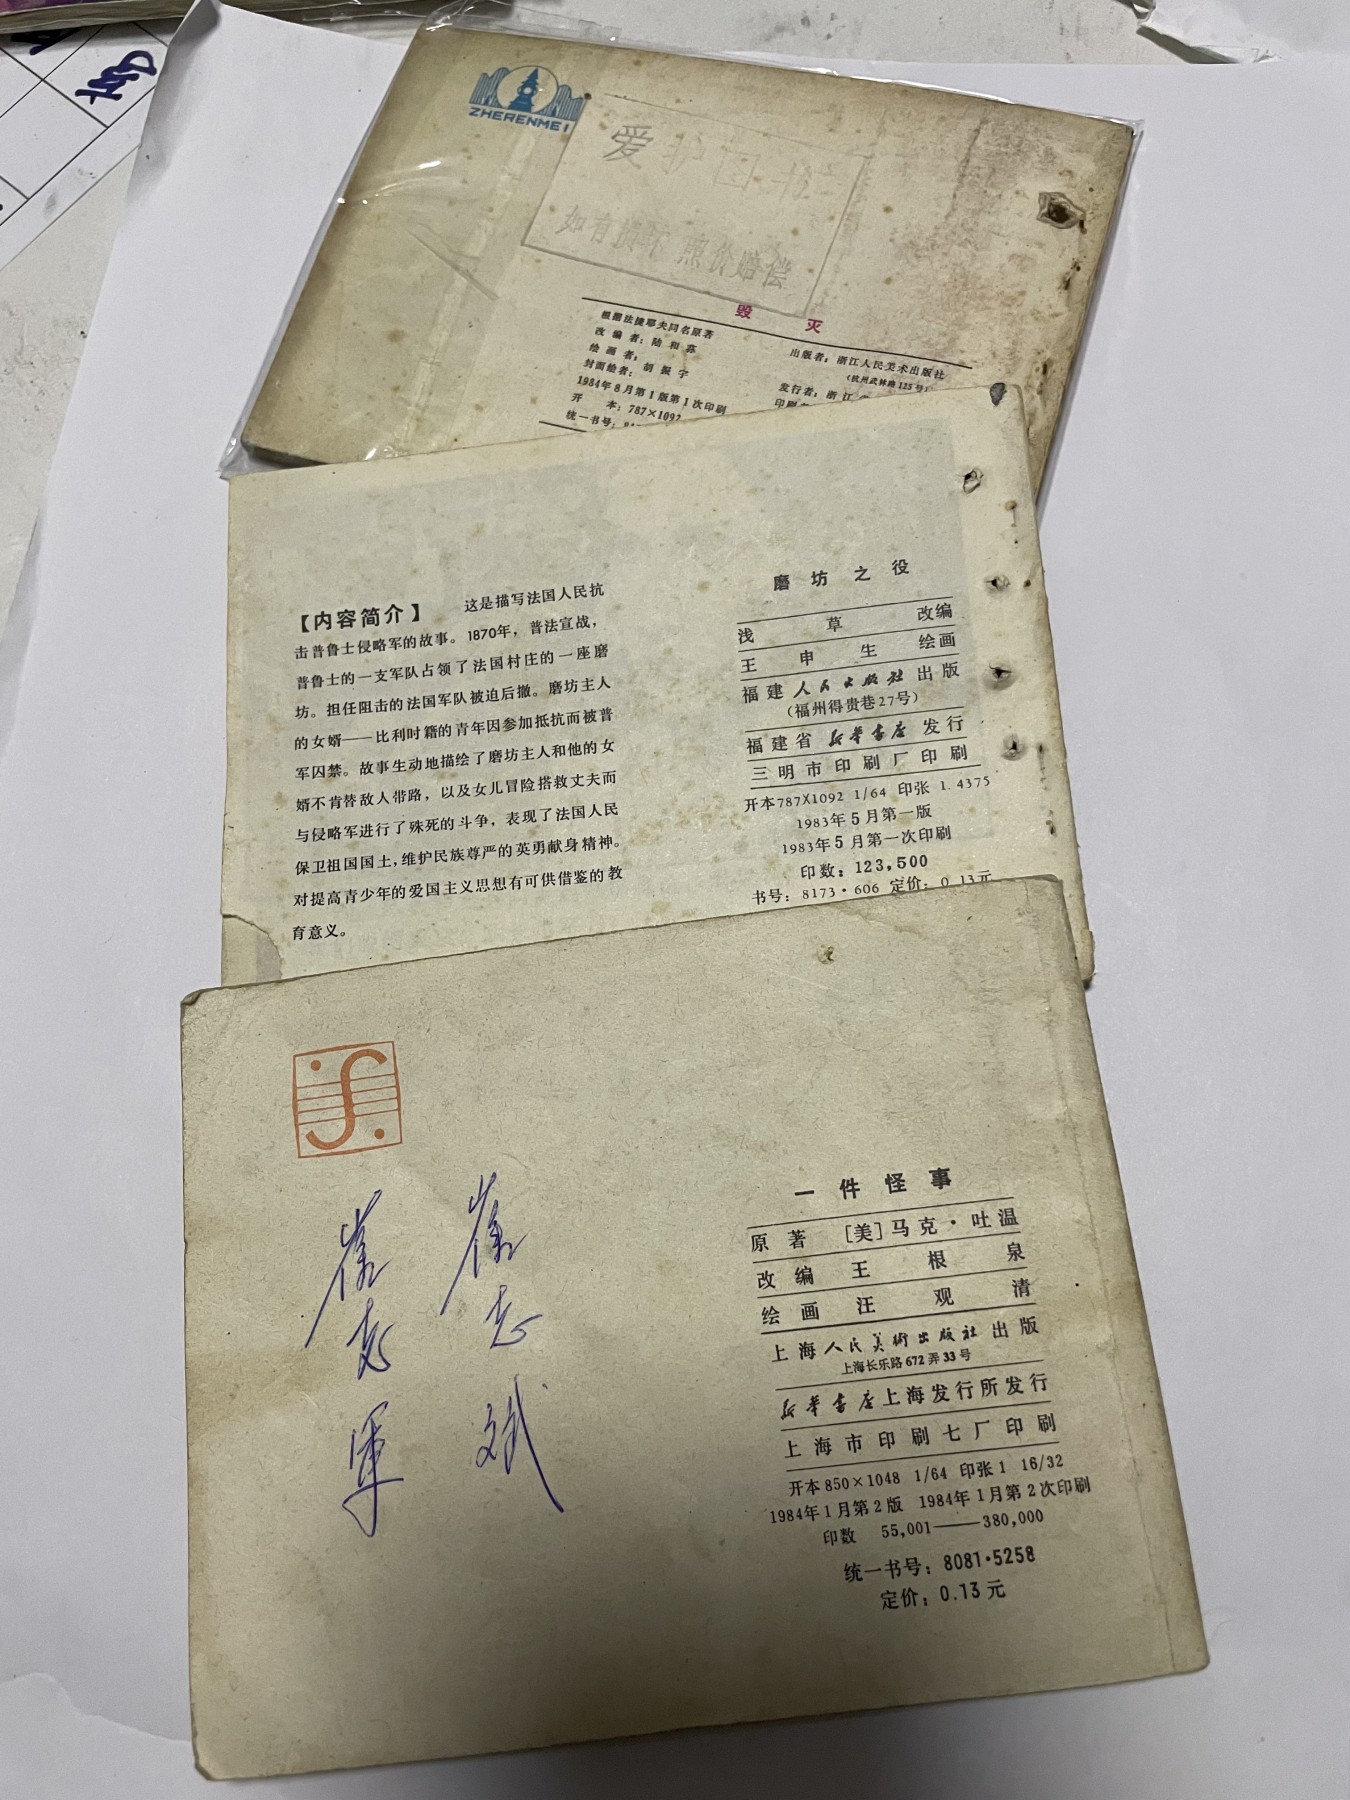 ZHERENMEI
爱护图书
如有损坏 照价赔偿
毁 灭
根据法捷耶夫同名原著
改编者：陆和荪
绘画者：胡振宇
封面绘者：
1984年8月第1版第1次印刷
开 本：787×1092
统一书号：
出版者：浙江人民美术出版社
（杭州武林路125号）
发行者：浙江
【内容简介】 这是描写法国人民抗
击普鲁士侵略军的故事。1870年，普法宣战，
普鲁士的一支军队占领了法国村庄的一座磨
坊。担任阻击的法国军队被迫后撤。磨坊主人
的女婿——比利时籍的青年因参加抵抗而被普
军囚禁。故事生动地描绘了磨坊主人和他的女
婿不肯替敌人带路，以及女儿冒险搭救丈夫而
与侵略军进行了殊死的斗争，表现了法国人民
保卫祖国国土，维护民族尊严的英勇献身精神。
对提高青少年的爱国主义思想有可供借鉴的教
育意义。
磨坊之役
浅 草 改编
王 申 生 绘画
福建人民出版社出版
（福州得贵巷27号）
福建省新华书店发行
三明市印刷厂印刷
开本787×1092 1/64 印张 1.4375
1983年5月第一版
1983年5月第一次印刷
印数：123,500
书号：8173·606 定价：0.13元
崔志军
崔志斌
一件怪事
原著 [美]马克·吐温
改编 王根泉
绘画 汪观清
上海人民美術出版社出版
上海长乐路672弄33号
新华书店上海发行所发行
上海市印刷七厂印刷
开本850×1048 1/64 印张1 16/32
1984年1月第2版 1984年1月第2次印刷
印数 55,001——380,000
统一书号：8081·5258
定价：0.13元